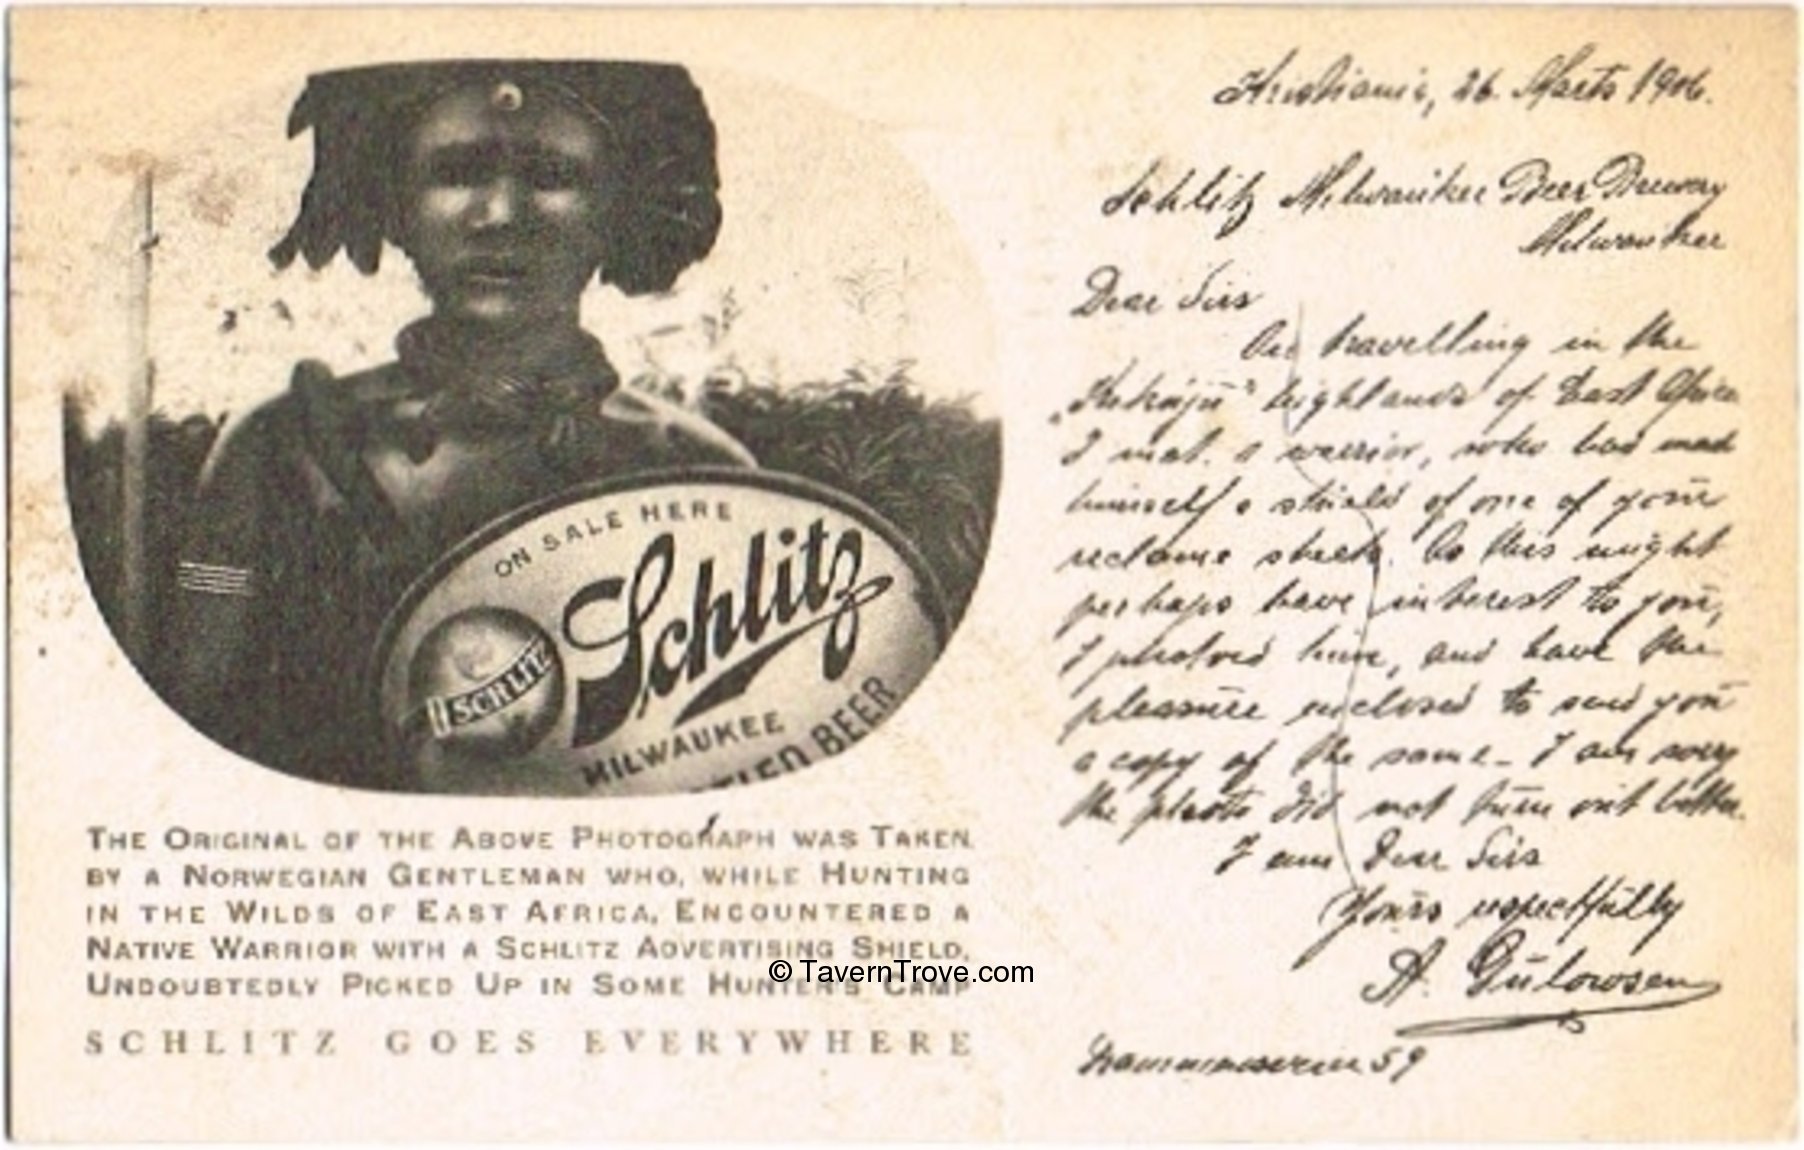 ON SALE HERE
Schlitz
SCHLITZ
MILWAUKEE
BEER
THE ORIGINAL OF THE ABOVE PHOTOGRAPH WAS TAKEN
BY A NORWEGIAN GENTLEMAN WHO, WHILE HUNTING
IN THE WILDS OF EAST AFRICA, ENCOUNTERED A
NATIVE WARRIOR WITH A SCHLITZ ADVERTISING SHIELD,
UNDOUBTEDLY PICKED UP IN SOME HUNTER'S CAMP
SCHLITZ GOES EVERYWHERE
© TavernTrove.com
Kristiania, 26. Marts 1906.
Schlitz Milwauker Beer Brewery
Milwauker
Dear Sirs
On travelling in the
highlands of East Africa
I met a warrior, who had made
himself a shield of one of your
reclame sheets. As this might
perhaps have interest to you,
I photoed him, and have the
pleasure enclosed to send you
a copy of the same – I am sorry
the plate did not turn out better.
I am Dear Sirs
Yours respectfully
A. Gulowsen
59